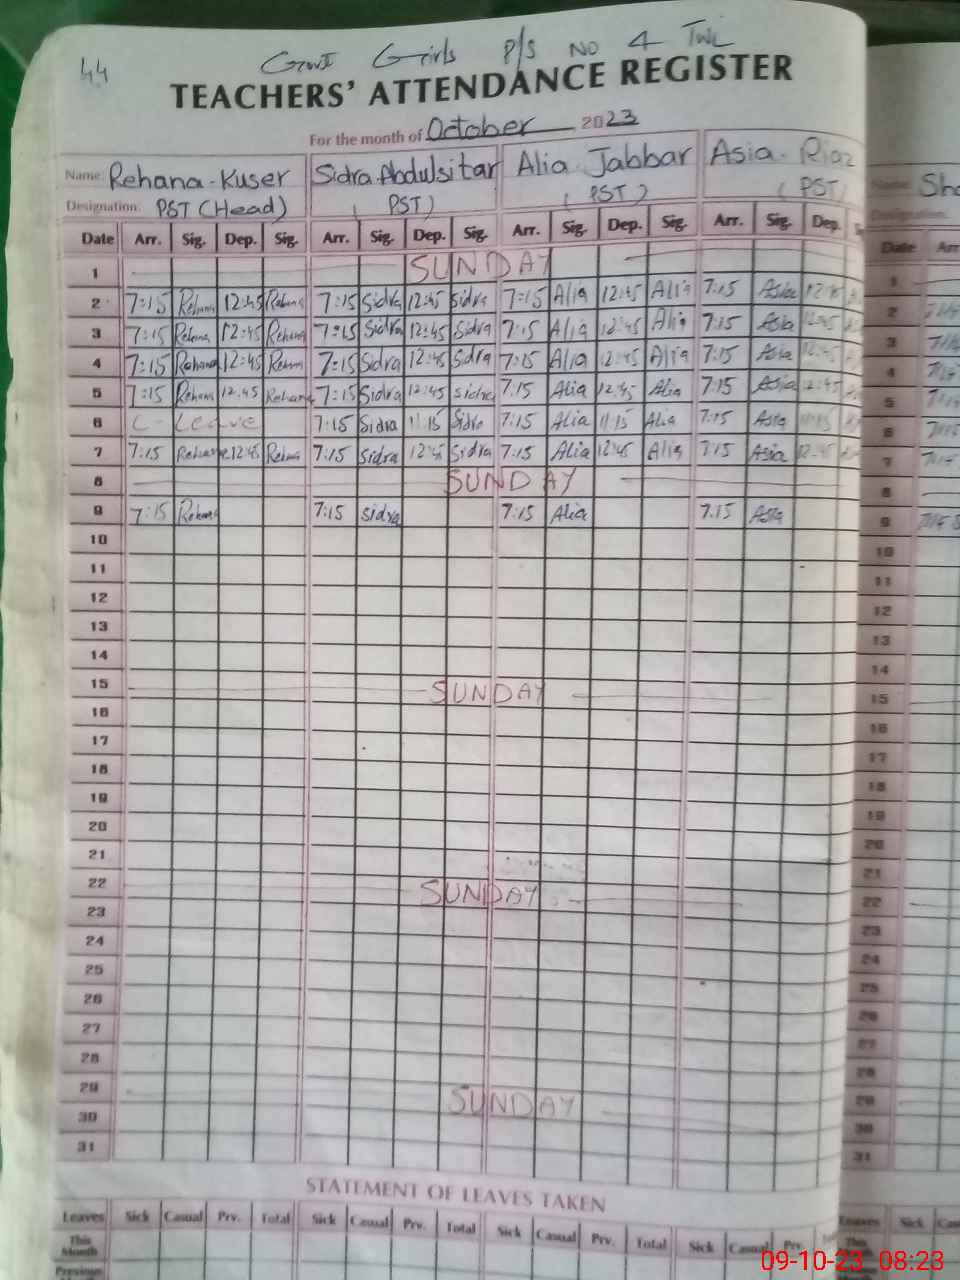 44
Govt Girls P/S NO 4
TEACHERS' ATTENDANCE REGISTER
For the month of October 2023
Name: Rehana-Kuser Sidra Abdulsitar Alia Jabbar Asia Riaz Name: Sh
Designation: PST (Head) (PST) (PST) (PST) Designation:
Date Arr. Sig. Dep. Sig. Arr. Sig. Dep. Sig. Arr. Sig. Dep. Sig. Arr. Sig. Dep. Date Arr
1 SUNDAY 1
2 7:15 Rehana 12:45 Rehana 7:15 Sidra 12:45 Sidra 7:15 Alia 12:45 Alia 7:15 Asia 12:45 2
3 7:15 Rehana 12:45 Rehana 7:15 Sidra 12:45 Sidra 7:15 Alia 12:45 Alia 7:15 Asia 12:45 3
4 7:15 Rehana 12:45 Rehana 7:15 Sidra 12:45 Sidra 7:15 Alia 12:45 Alia 7:15 Asia 12:45 4
5 7:15 Rehana 12:45 Rehana 7:15 Sidra 12:45 Sidra 7:15 Alia 12:45 Alia 7:15 Asia 12:45 5
6 C-Leave 7:15 Sidra 11:15 Sidra 7:15 Alia 11:15 Alia 7:15 Asia 11:15 6
7 7:15 Rehana 12:45 Rehana 7:15 Sidra 12:45 Sidra 7:15 Alia 12:45 Alia 7:15 Asia 12:45 7
8 SUNDAY 8
9 7:15 Rehana 7:15 Sidra 7:15 Alia 7:15 Asia 9
10 10
11 11
12 12
13 13
14 14
15 SUNDAY 15
16 16
17 17
18 18
19 19
20 20
21 21
22 SUNDAY 22
23 23
24 24
25 25
26 26
27 27
28 28
29 SUNDAY 29
30 30
31 31
STATEMENT OF LEAVES TAKEN
Leaves Sick Casual Prv. Total Sick Casual Prv. Total Sick Casual Prv. Total Sick Casual Prv. Leaves Sick
This Month This Month
Previous
09-10-23 08:23